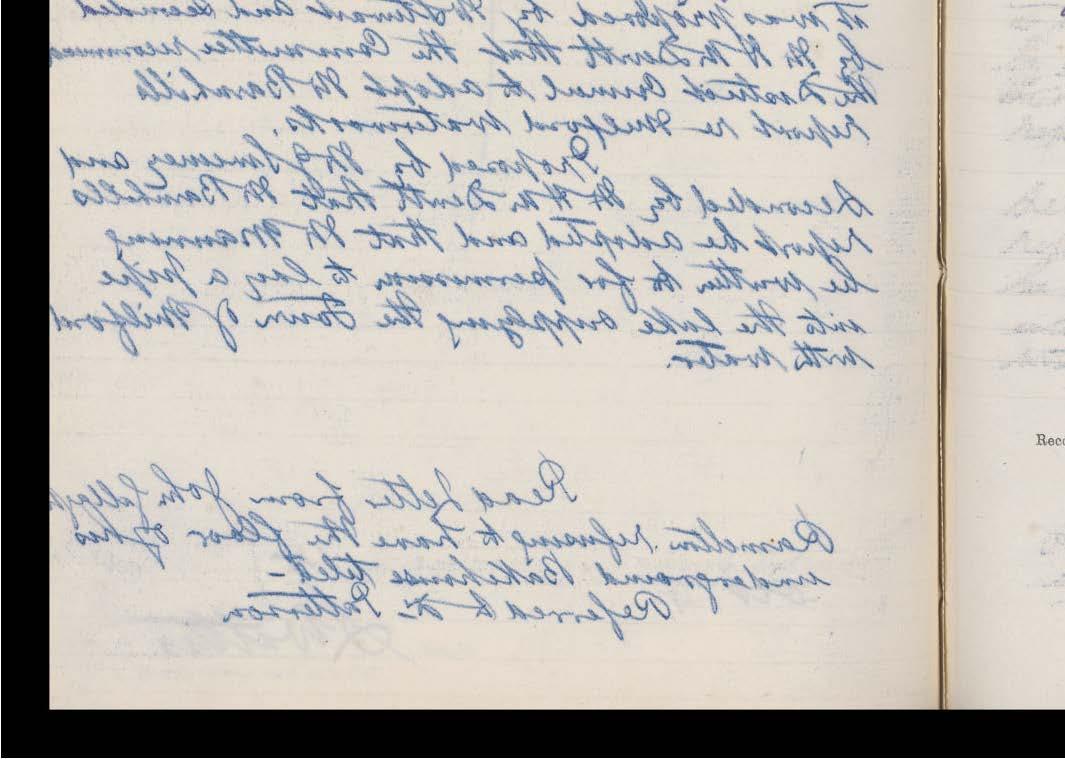 It was proposed by Mr Stewart and seconded
by Mr H McDevitt that the Committee recommend
the District Council to adopt Mr Barnhills
report re Milford Waterworks.
Proposed by Mr J Sweeney and
Seconded by Mr H McDevitt that Mr Barnhills
report be adopted and that Mr Manning
be written to for permission to lay a pipe
into the lake supplying the Town of Milford
with water.
Read letter from John
Ramelton refusing to have the floor of his
underground Bakehouse tiled -
Referred to Dr Patterson
Reco